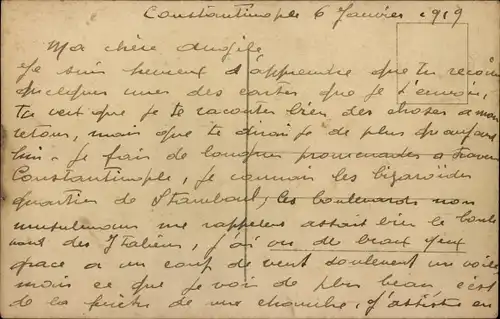 Constantinople 6 Janvier 1919
Ma chère Angèle
Je suis heureux d'apprendre que tu reçois
quelques unes des cartes que je t'envoie,
tu veut que je te raconte bien des choses a mon
retour, mais que te dirai je de plus qu'aujourd
hui. Je fais de longues promenades a travers
Constantinople, je connais les bizaroïdes
quartier de Stamboul, les boulevards non
musulmans me rappelent assait bien le boule
vard des Italiens, j'ai vu de beaux yeux
grace a un coup de vent soulevant un voile
mais ce que je vois de plus beau c'est
de la fenêtre de une chambre, j'assiste en